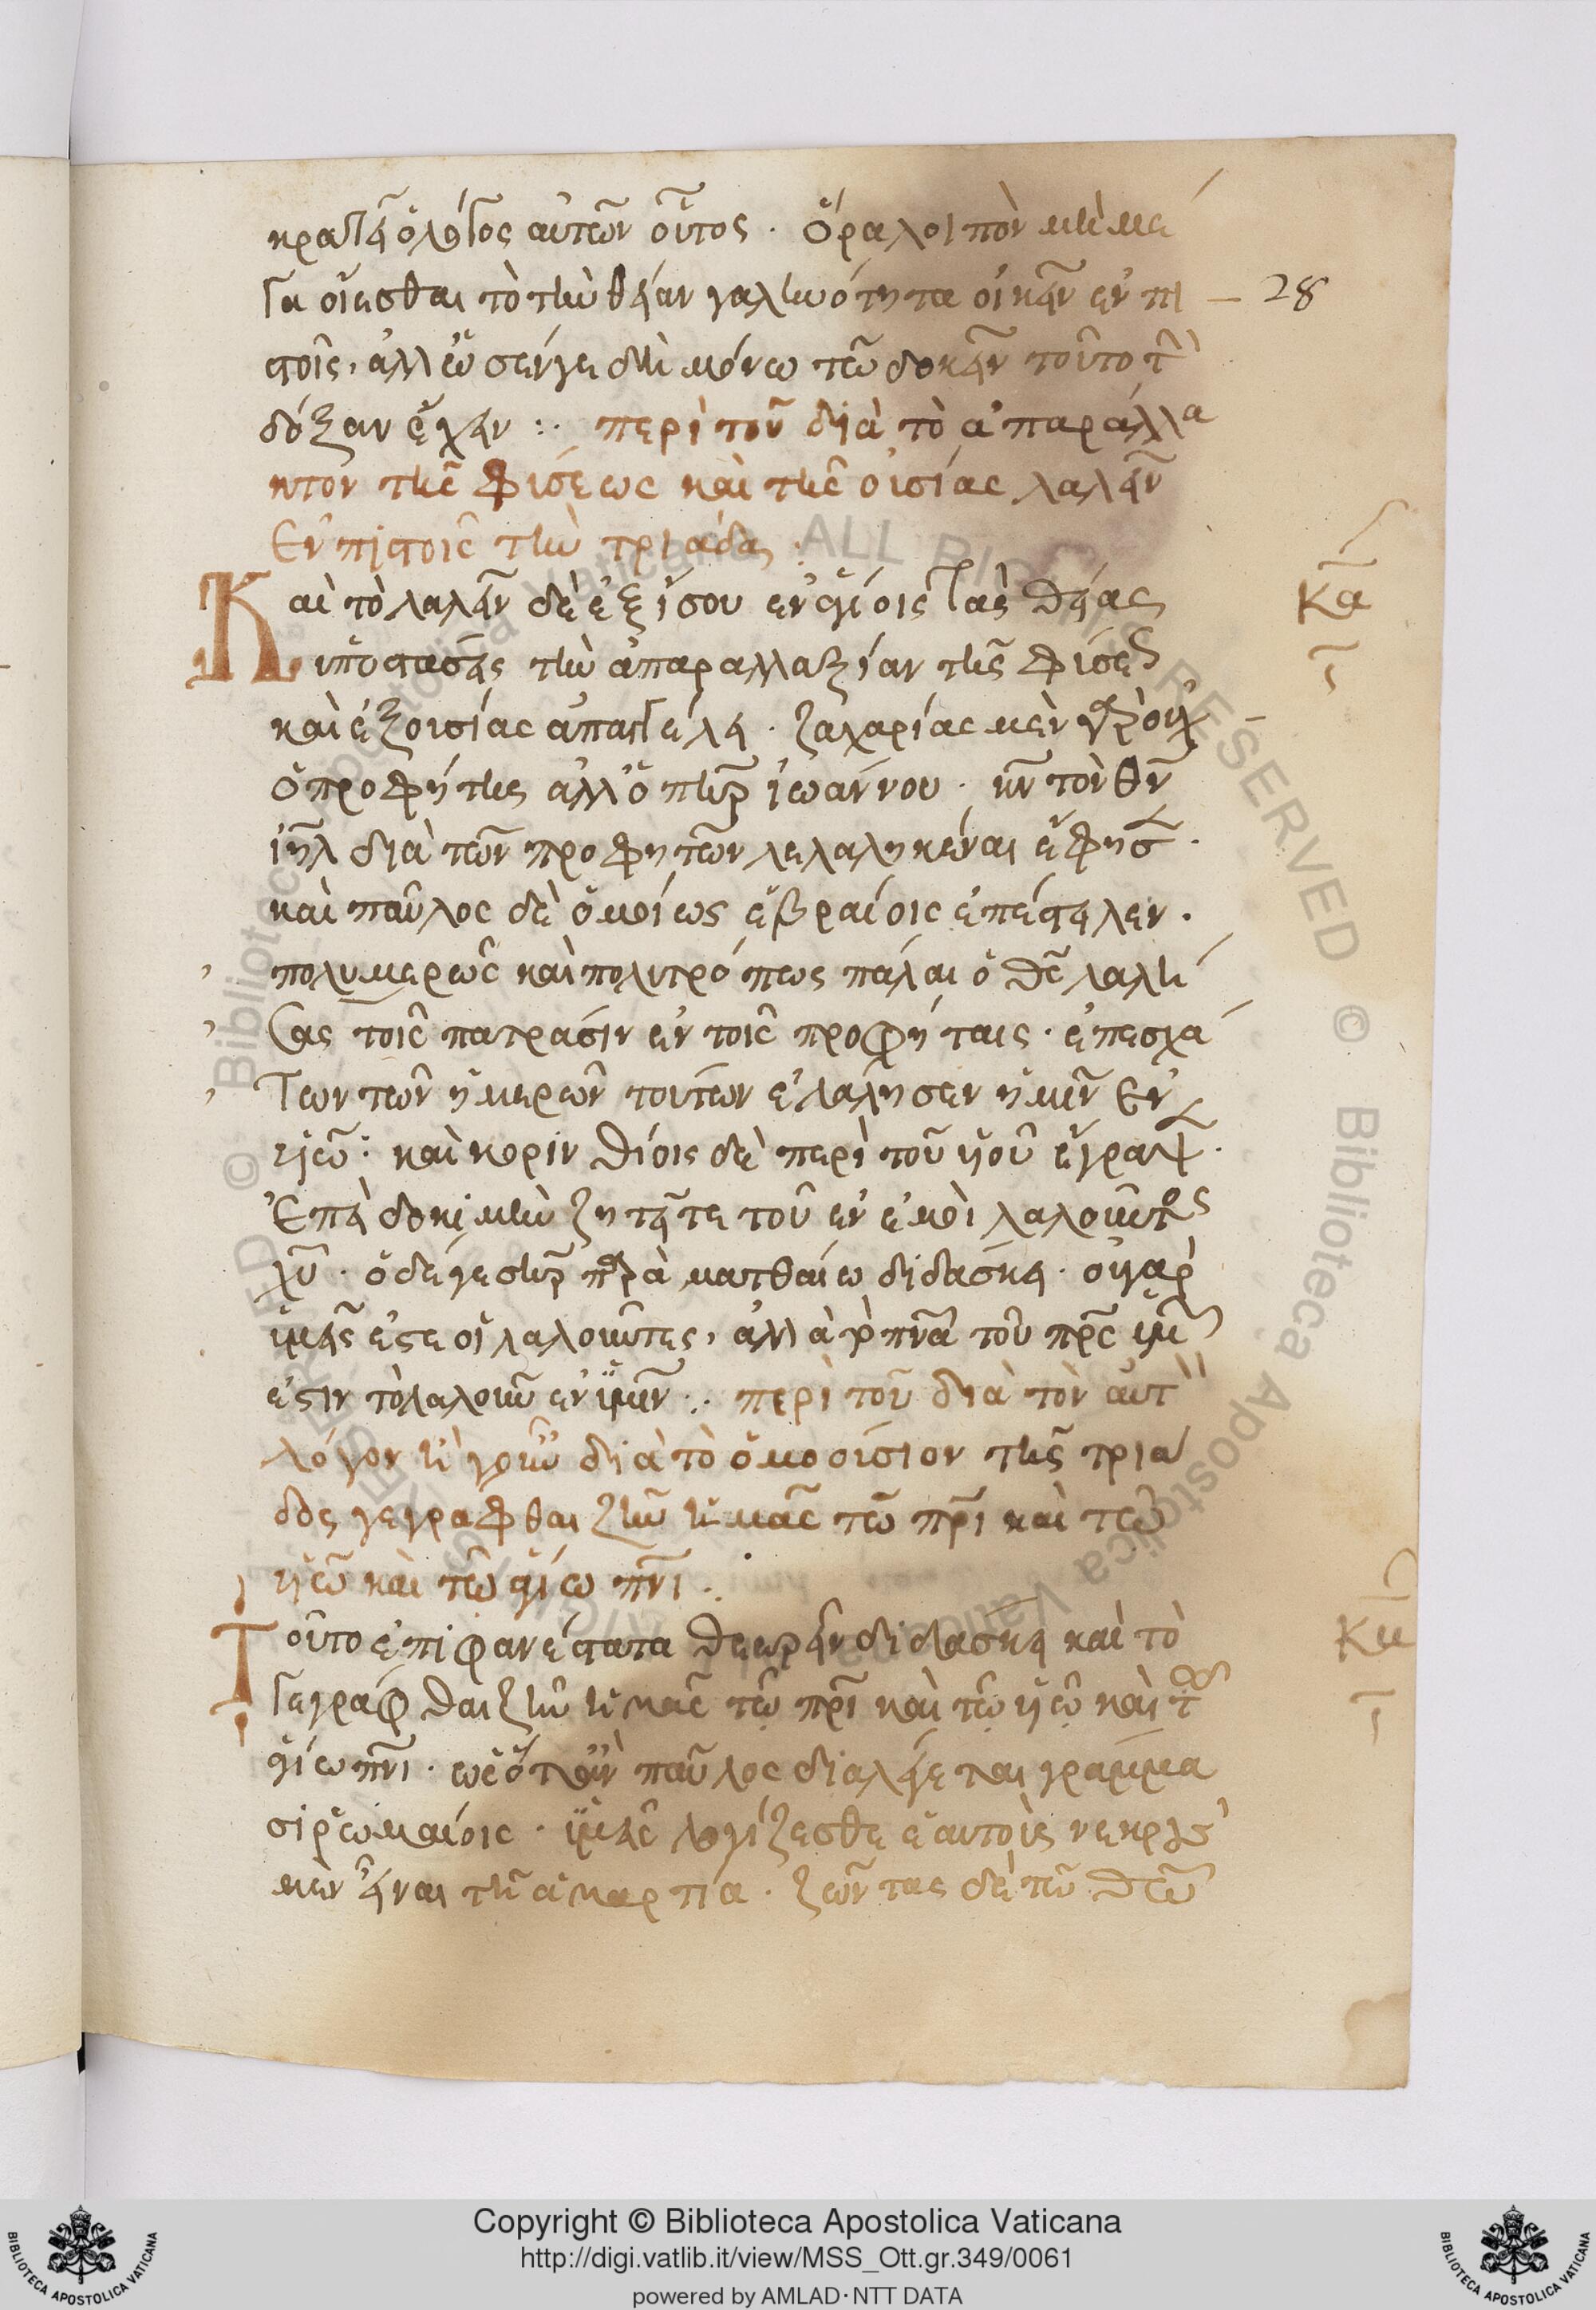 κρατεῖ ὁ λόγος αὐτῶν οὗτος · ὅρα λοιπὸν μὴ μέ
γα οἴεσθαι τὸ τὴν θείαν γαληνότητα οἰκεῖν ἐν πι
28
στοῖς, ἀλλ' ὡς ἐν γε δὴ μόνω τῶ δοκεῖν τοῦτο τὴν
δόξαν ἔχειν :· περὶ τοῦ διὰ τὸ ἀπαράλλα
κτον τῆς φύσεως καὶ τῆς οὐσίας λαλεῖν
ἐν πιστοῖς τὴν τριάδα ·
Καὶ τὸ λαλεῖν δὲ ἐξίσου ἐν ἁγίοις τὰς θείας
κα
ὑποστάσεις τὴν ἀπαραλλαξίαν τῆς φύσεως
καὶ ἐξουσίας ἀπαγγέλει · ζαχαρίας μὲν γὰρ οὐχ
ὁ προφήτης ἀλλ' ὁ πηρ ἰωάννου · κν τὸν θν
ιηλ διὰ τῶν προφητῶν λελαληκέναι ἔφησεν ·
καὶ παῦλος δὲ ὁμοίως ἑβραίοις ἐπέστελεν ·
πολυμερῶς καὶ πολυτρόπως πάλαι ὁ θς λαλή
σας τοῖς πατράσιν ἐν τοῖς προφήταις · ἐπεσχά
των τῶν ἡμερῶν τούτων ἐλάλησεν ἡμῖν ἐν
υἱῶ : καὶ κορινθίοις δὲ περὶ τοῦ υἱοῦ ἔγραψεν ·
Ἐπεὶ δοκιμὴν ζητεῖτε τοῦ ἐν ἐμοὶ λαλοῦντος
χυ · ὁ δέ γε σηρ παρὰ ματθαίω διδάσκει · οὐ γὰρ
ὑμεῖς ἐστε οἱ λαλοῦντες, ἀλλὰ τὸ πνα τοῦ πρς ὑμῶν
ἐστιν τὸ λαλοῦν ἐν ὑμῖν :· περὶ τοῦ διὰ τὸν αὐτὸν
λόγον ἤγουν διὰ τὸ ὁμοούσιον τῆς τριά
δος γεγράφθαι ζῆν ἡμᾶς τῶ πρι καὶ τῶ
υἱῶ καὶ τῶ ἁγίω πνι ·
Τοῦτο ἐπιφανέστατα θεωρεῖν διδάσκει καὶ τὸ
γεγράφθαι ζῆν ἡμᾶς τῶ πρι καὶ τῶ υἱῶ καὶ τῶ
ἁγίω πνι · ὡς ὅταν παῦλος διαλέγεται γράμμα
σι ῥωμαίοις · ὑμεῖς λογίζεσθε ἑαυτοὺς νεκροὺς
μὲν εἶναι τῆ ἁμαρτία · ζῶντας δὲ τῶ θεῶ
Copyright © Biblioteca Apostolica Vaticana
http://digi.vatlib.it/view/MSS_Ott.gr.349/0061
powered by AMLAD·NTT DATA